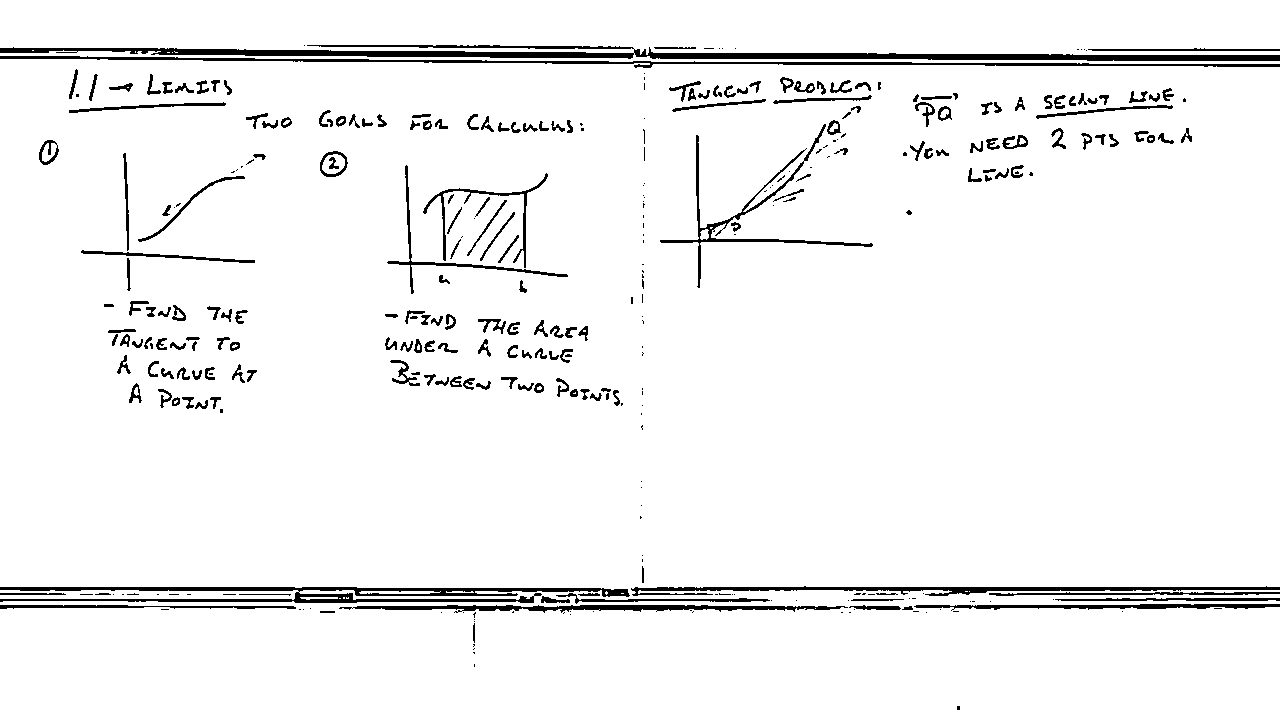 1.1 → LIMITS
TWO GOALS FOR CALCULUS:
①
②
a
b
- FIND THE
TANGENT TO
A CURVE AT
A POINT.
- FIND THE AREA
UNDER A CURVE
BETWEEN TWO POINTS.
TANGENT PROBLEM:
Q
P
PQ IS A SECANT LINE.
• YOU NEED 2 PTS FOR A
LINE.
•